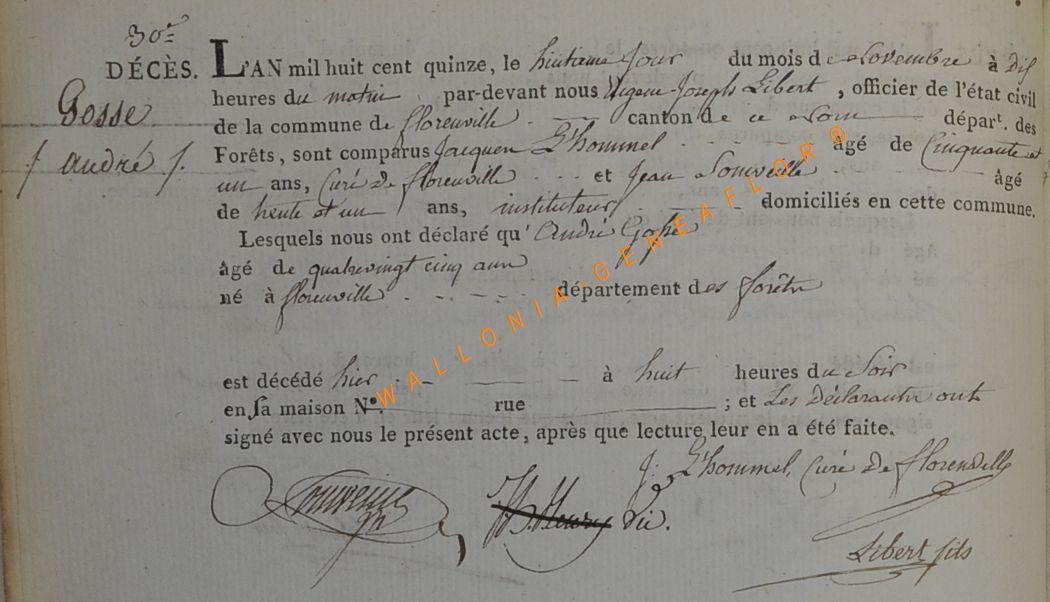 30e
DÉCÈS.
Gosse
/ andré /.
L'AN mil huit cent quinze, le huitieme jour du mois de Novembre à dix
heures du matin par-devant nous Joseph Libert, officier de l'état civil
de la commune de florenville canton de ce Nom départ. des
Forêts, sont comparus Jacques L'hommel âgé de Cinquante et
un ans, Curé de florenville et Jean âgé
de trente et un ans, instituteur domiciliés en cette commune.
Lesquels nous ont déclaré qu'André Gosse
âgé de quatrevingt cinq ans
né à florenville département des forêts
est décédé hier à huit heures du Soir
en sa maison N°. rue ; et Les Déclarants ont
signé avec nous le présent acte, après que lecture leur en a été faite.
J: L'hommel, Curé de florenville
Libert fils
WALLONIA-GENEAFLOR®